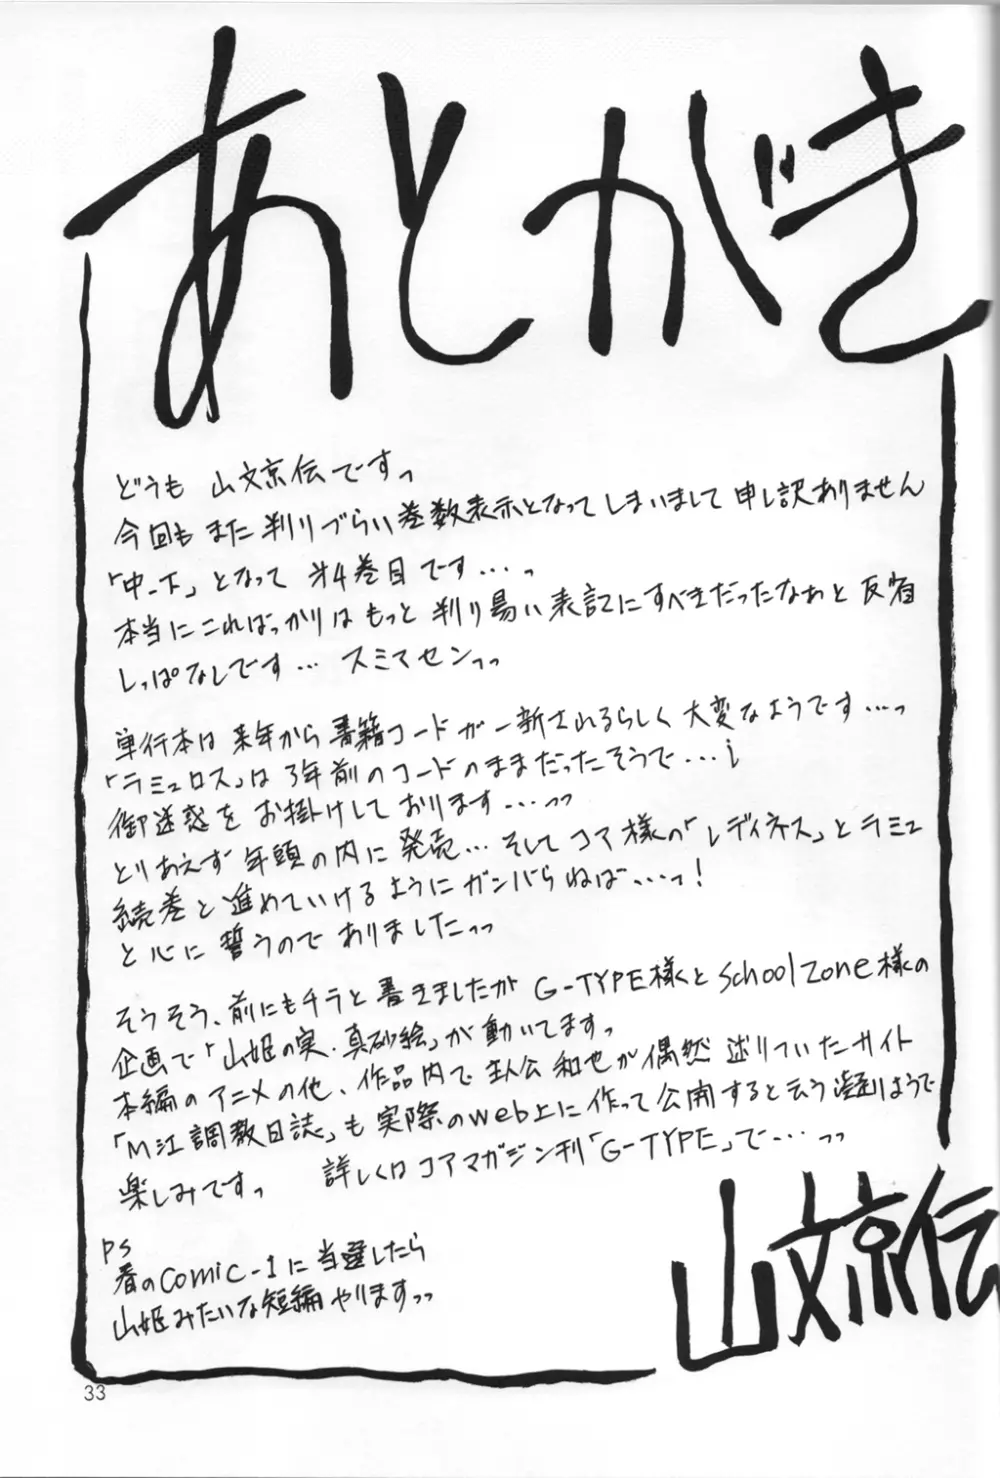 あとがき
どうも 山文京伝ですっ
今回も また 判りづらい巻数表示となってしまいまして 申し訳ありません
「中-下」となって 第4巻目です…っ
本当にこればっかりは もっと 判り易い表記にすべきだったなぁと 反省
しっぱなしです… スミマセンっっ
単行本は 来年から 書籍コードが一新されるらしく 大変なようです…っ
「ラミュロス」は 3年前のコードのままだったそうで…;
御迷惑を お掛けしております…っっ
とりあえず 年頭の内に 発売… そして コア様の「レディネス」とラミュ
続巻と 進めていけるように ガンバらねば…っ!
と心に 誓うので ありましたっっ
そうそう、前にもチラと 書きましたが G-TYPE様と School Zone様の
企画で「山姫の実・真砂絵」が 動いてますっ
本編のアニメの他、作品内で 主人公 和也が 偶然 辿りついたサイト
「M江調教日誌」も 実際のweb上に 作って 公開すると云う 凝りようで
楽しみですっ 詳しくは コアマガジン刊「G-TYPE」で…っっ
PS
春のComic-1に 当選したら
山姫みたいな短編 やりますっっ
山文京伝
33